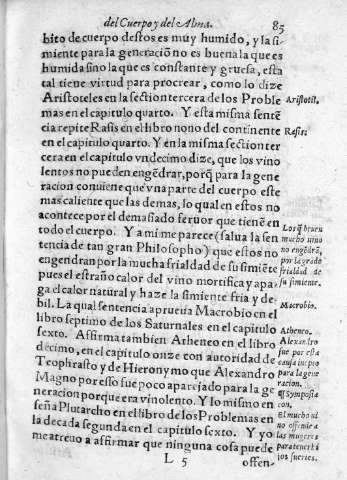 del Cuerpo y del Alma. 85
bito de cuerpo destos es muy humido, y la si-
miente para la generacion no es buena la que es
humida sino la que es constante y gruesa, esta
tal tiene virtud para procrear, como lo dize
Aristoteles en la section tercera de los Proble
mas en el capitulo quarto. Y esta misma sentē
cia repite Rasis en el libro nono del continente
en el capitulo quarto. Y en la misma section ter
cera en el capitulo vndecimo dize, que los vino
lentos no pueden engēdrar, porq̃ para la gene
racion conuiene que vna parte del cuerpo este
mas caliente que las demas, lo qual en estos no
acontece por el demasiado feruor que tienē en
todo el cuerpo. Y a mi me parece (salua la sen
tencia de tan gran Philosopho) que estos no
engendran por la mucha frialdad de su simiēte
pues el estraño calor del vino mortifica y apa-
ga el calor natural y haze la simiente fria y de-
bil. La qual sentencia aprueua Macrobio en el
libro septimo de los Saturnales en el capitulo
sexto. Affirma tambien Atheneo en el libro
decimo, en el capitulo onze con autoridad de
Teophrasto y de Hieronymo que Alexandro
Magno por esso fue poco aparejado para la ge
neracion porque era vinolento. Y lo mismo en
seña Plutarcho en el libro de los Problemas en
la decada segunda en el capitulo sexto. Y yo
me atreuo a affirmar que ninguna cosa puede
L 5 offen-
Aristotil.
Rasis.
Los q̃ beuen
mucho vino
no engēdrã,
por la grãde
frialdad de
su simiente.
Macrobio.
Atheneo.
Alexandro
fue por esta
causa inepto
para la gene
racion.
Symposia
con.
El mucho vi
no offende a
las mugeres
para tener hi
jos fuertes.